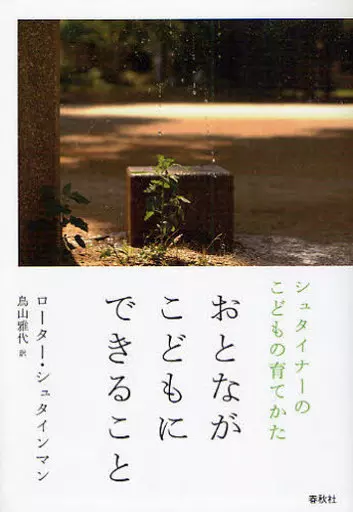 シュタイナーの
こどもの育てかた
おとなが
こどもに
できること
ローター・シュタインマン
鳥山雅代 訳
春秋社